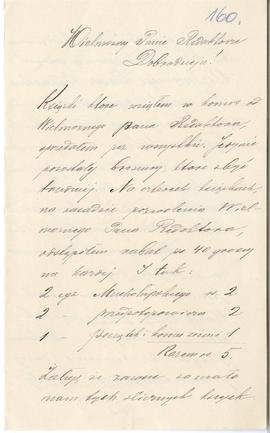 160.
Wielmożny Panie Redaktorze
Dobrodzieju!
Książki które wziąłem w komis od
Wielmożnego Pana Redaktora,
sprzedałem już wszystkie. Jedynie
pozostały broszury, które zbyć
trudniej. Na niektórych książkach,
na zasadzie pozwolenia Wiel-
możnego Pana Redaktora,
odstąpiłem rabat po 40 groszy
na każdej I tak:
2 egz. r. 2
2 - 2
1 - Początek i koniec ziemi 1
Razem r. 5
Żałuję że zawsze za mało
mam tych ślicznych